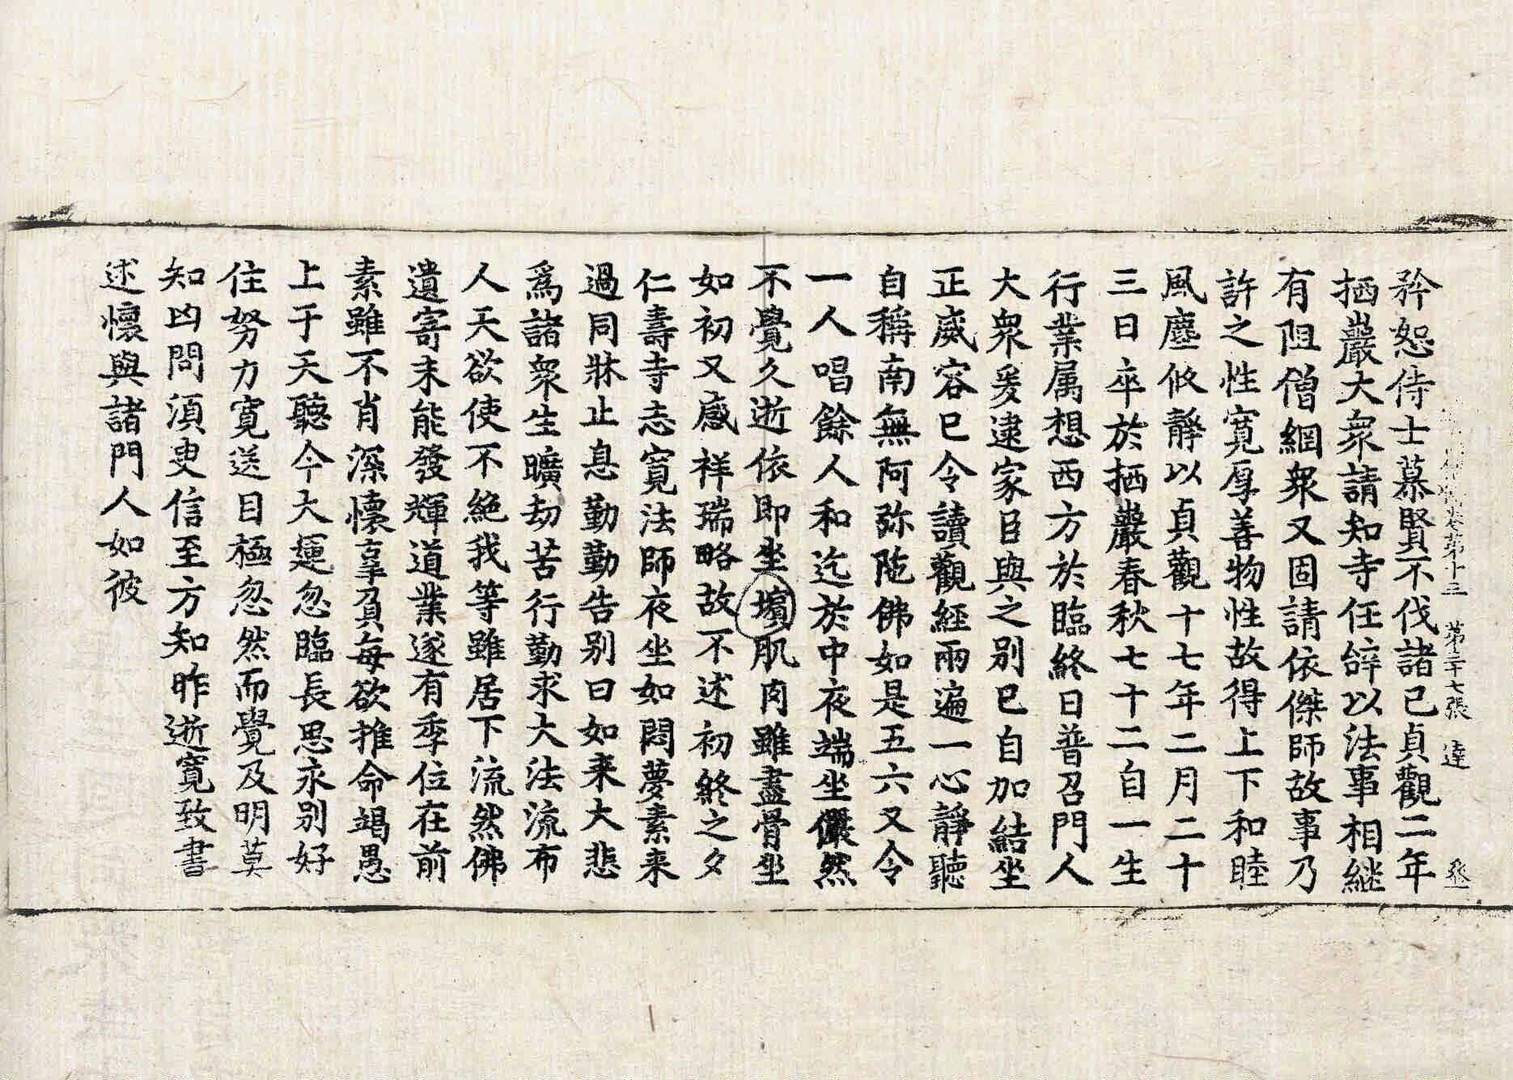 第十三 第三十七張 達
矜恕侍士慕賢不伐諸己貞觀二年
栖巖大衆請知寺任辝以法事相繼
有阻僧綱衆又固請依傑師故事乃
許之性寬厚善物性故得上下和睦
風塵攸靜以貞觀十七年二月二十
三日卒於栖巖春秋七十二自一生
行業属想西方於臨終日普召門人
大衆爰逮家臣與之別已自加結坐
正威容已令讀觀經兩遍一心靜聽
自稱南無阿弥陁佛如是五六又令
一人唱餘人和迄於中夜端坐儼然
不覺久逝依即坐壙肌肉雖盡骨坐
如初又感祥瑞略故不述初終之夕
仁壽寺志寬法師夜坐如悶夢素来
過同牀止息勤勤告別曰如来大悲
爲諸衆生曠劫苦行勤求大法流布
人天欲使不絶我等雖居下流然佛
遺寄末能發輝道業遂有季位在前
素雖不肖深懷辜負每欲推命竭愚
上于天聽今大運忽臨長思永別好
住努力寬送目極忽然而覺及明莫
知凶問須臾信至方知昨逝寬致書
述懷與諸門人如彼